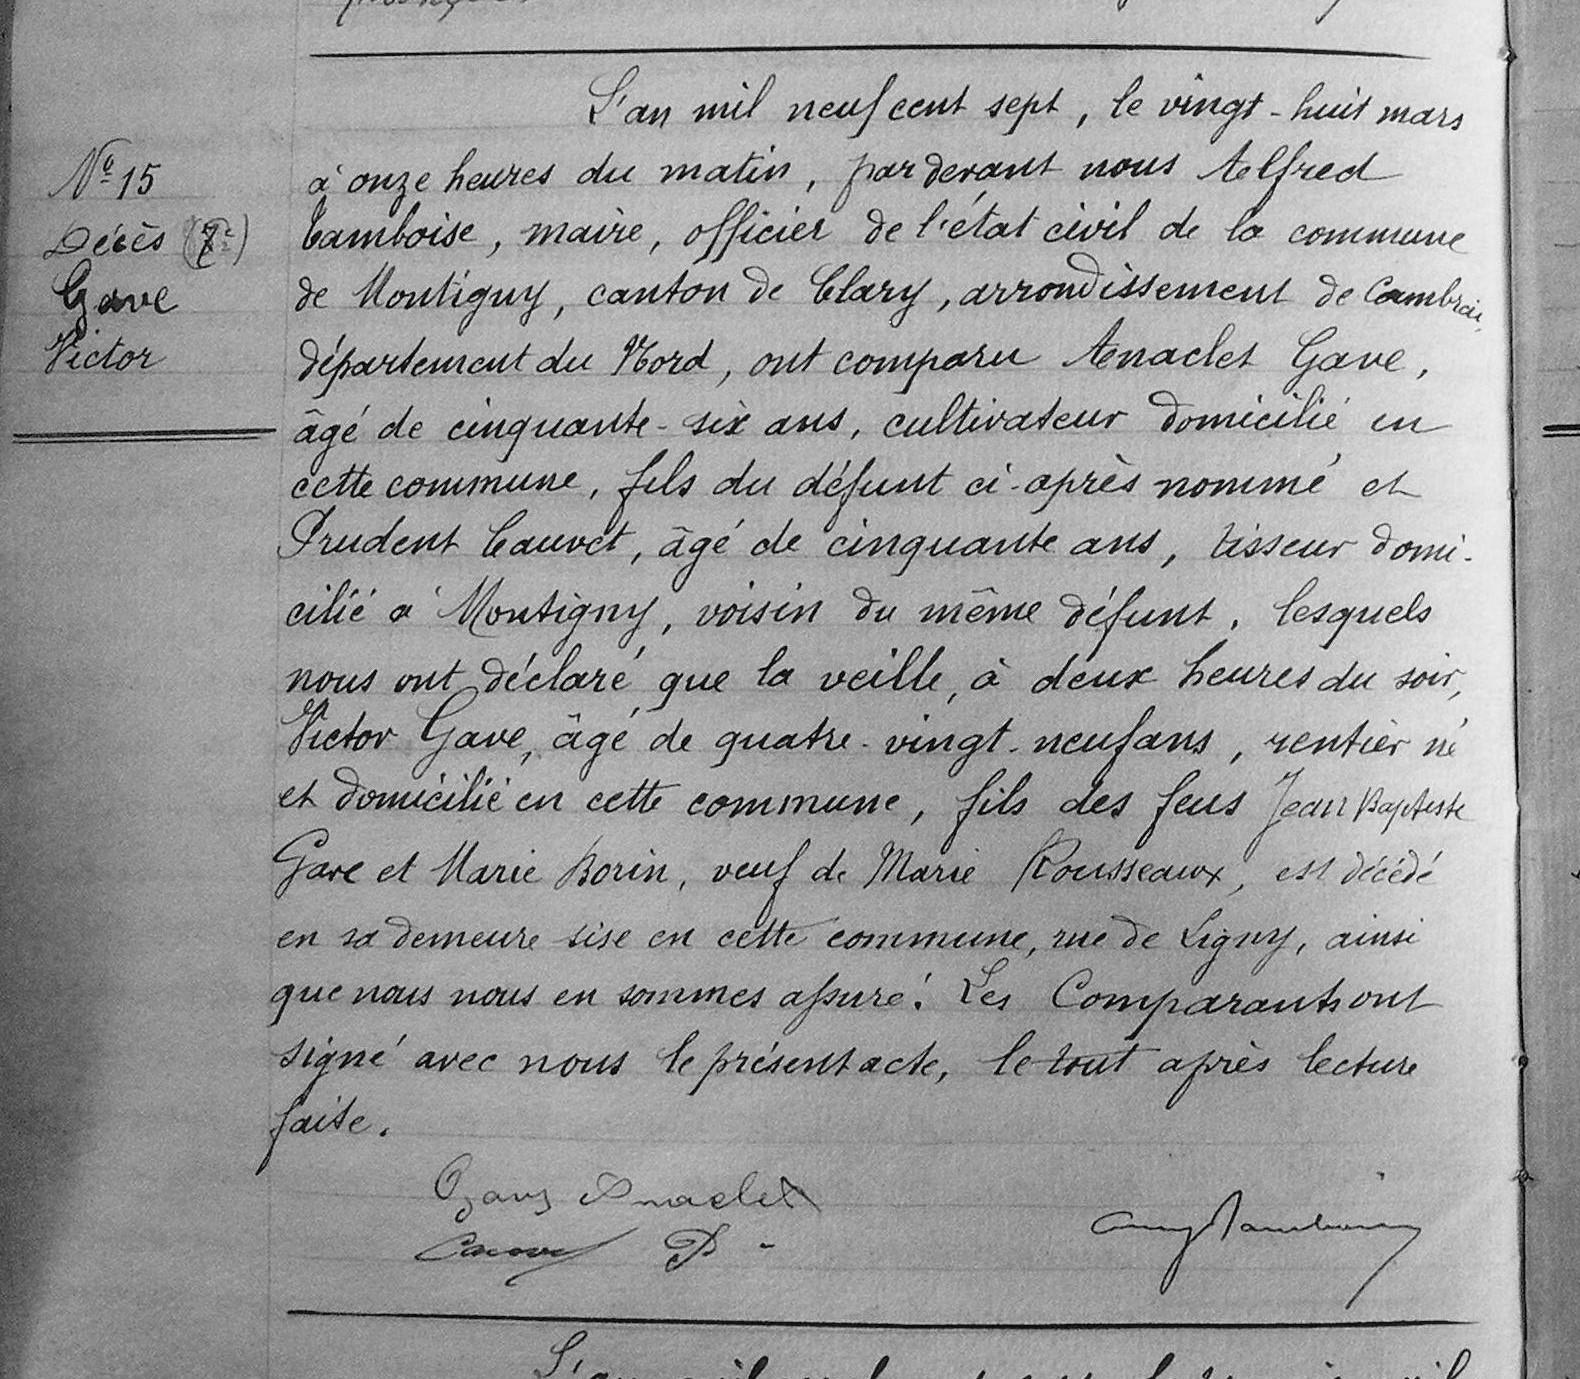 L'an mil neuf cent sept, le vingt-huit mars
N° 15
à onze heures du matin, par devant nous Alfred
Décès (7e)
Tamboise, maire, officier de l'état civil de la commune
Gave
de Montigny, canton de Clary, arrondissement de Cambrai,
Victor
département du Nord, ont comparu Anaclet Gave,
âgé de cinquante-six ans, cultivateur domicilié en
cette commune, fils du défunt ci-après nommé et
Prudent Cauvet, âgé de cinquante ans, tisseur domi-
cilié à Montigny, voisin du même défunt, lesquels
nous ont déclaré que la veille, à deux heures du soir,
Victor Gave, âgé de quatre-vingt-neuf ans, rentier né
et domicilié en cette commune, fils des feus Jean Baptiste
Gave et Marie Borin, veuf de Marie Rousseaux, est décédé
en sa demeure sise en cette commune, rue de Ligny, ainsi
que nous nous en sommes assuré. Les Comparants ont
signé avec nous le présent acte, le tout après lecture
faite.
Gave Anaclet
Cauvet P